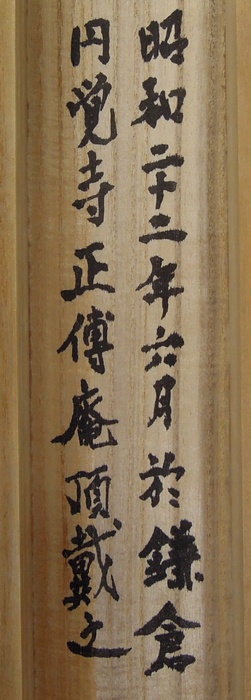 昭和二十二年六月於鎌倉
円覚寺正傳庵頂戴之